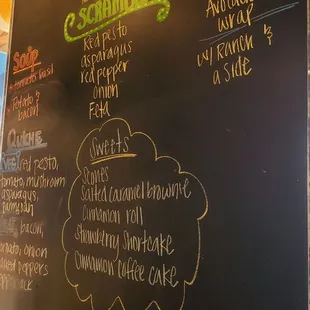 SCRAMBLE
Red pesto
asparagus
red pepper
onion
Feta
Avocado
wrap
w/ Ranch &
a side
Soup
basil
Potato &
bacon
Quiche
pesto,
tomato, mushroom
asparagus,
parmesan
bacon,
tomato, onion
peppers
Sweets
Scones
Salted caramel brownie
Cinnamon roll
Strawberry shortcake
Cinnamon coffee cake